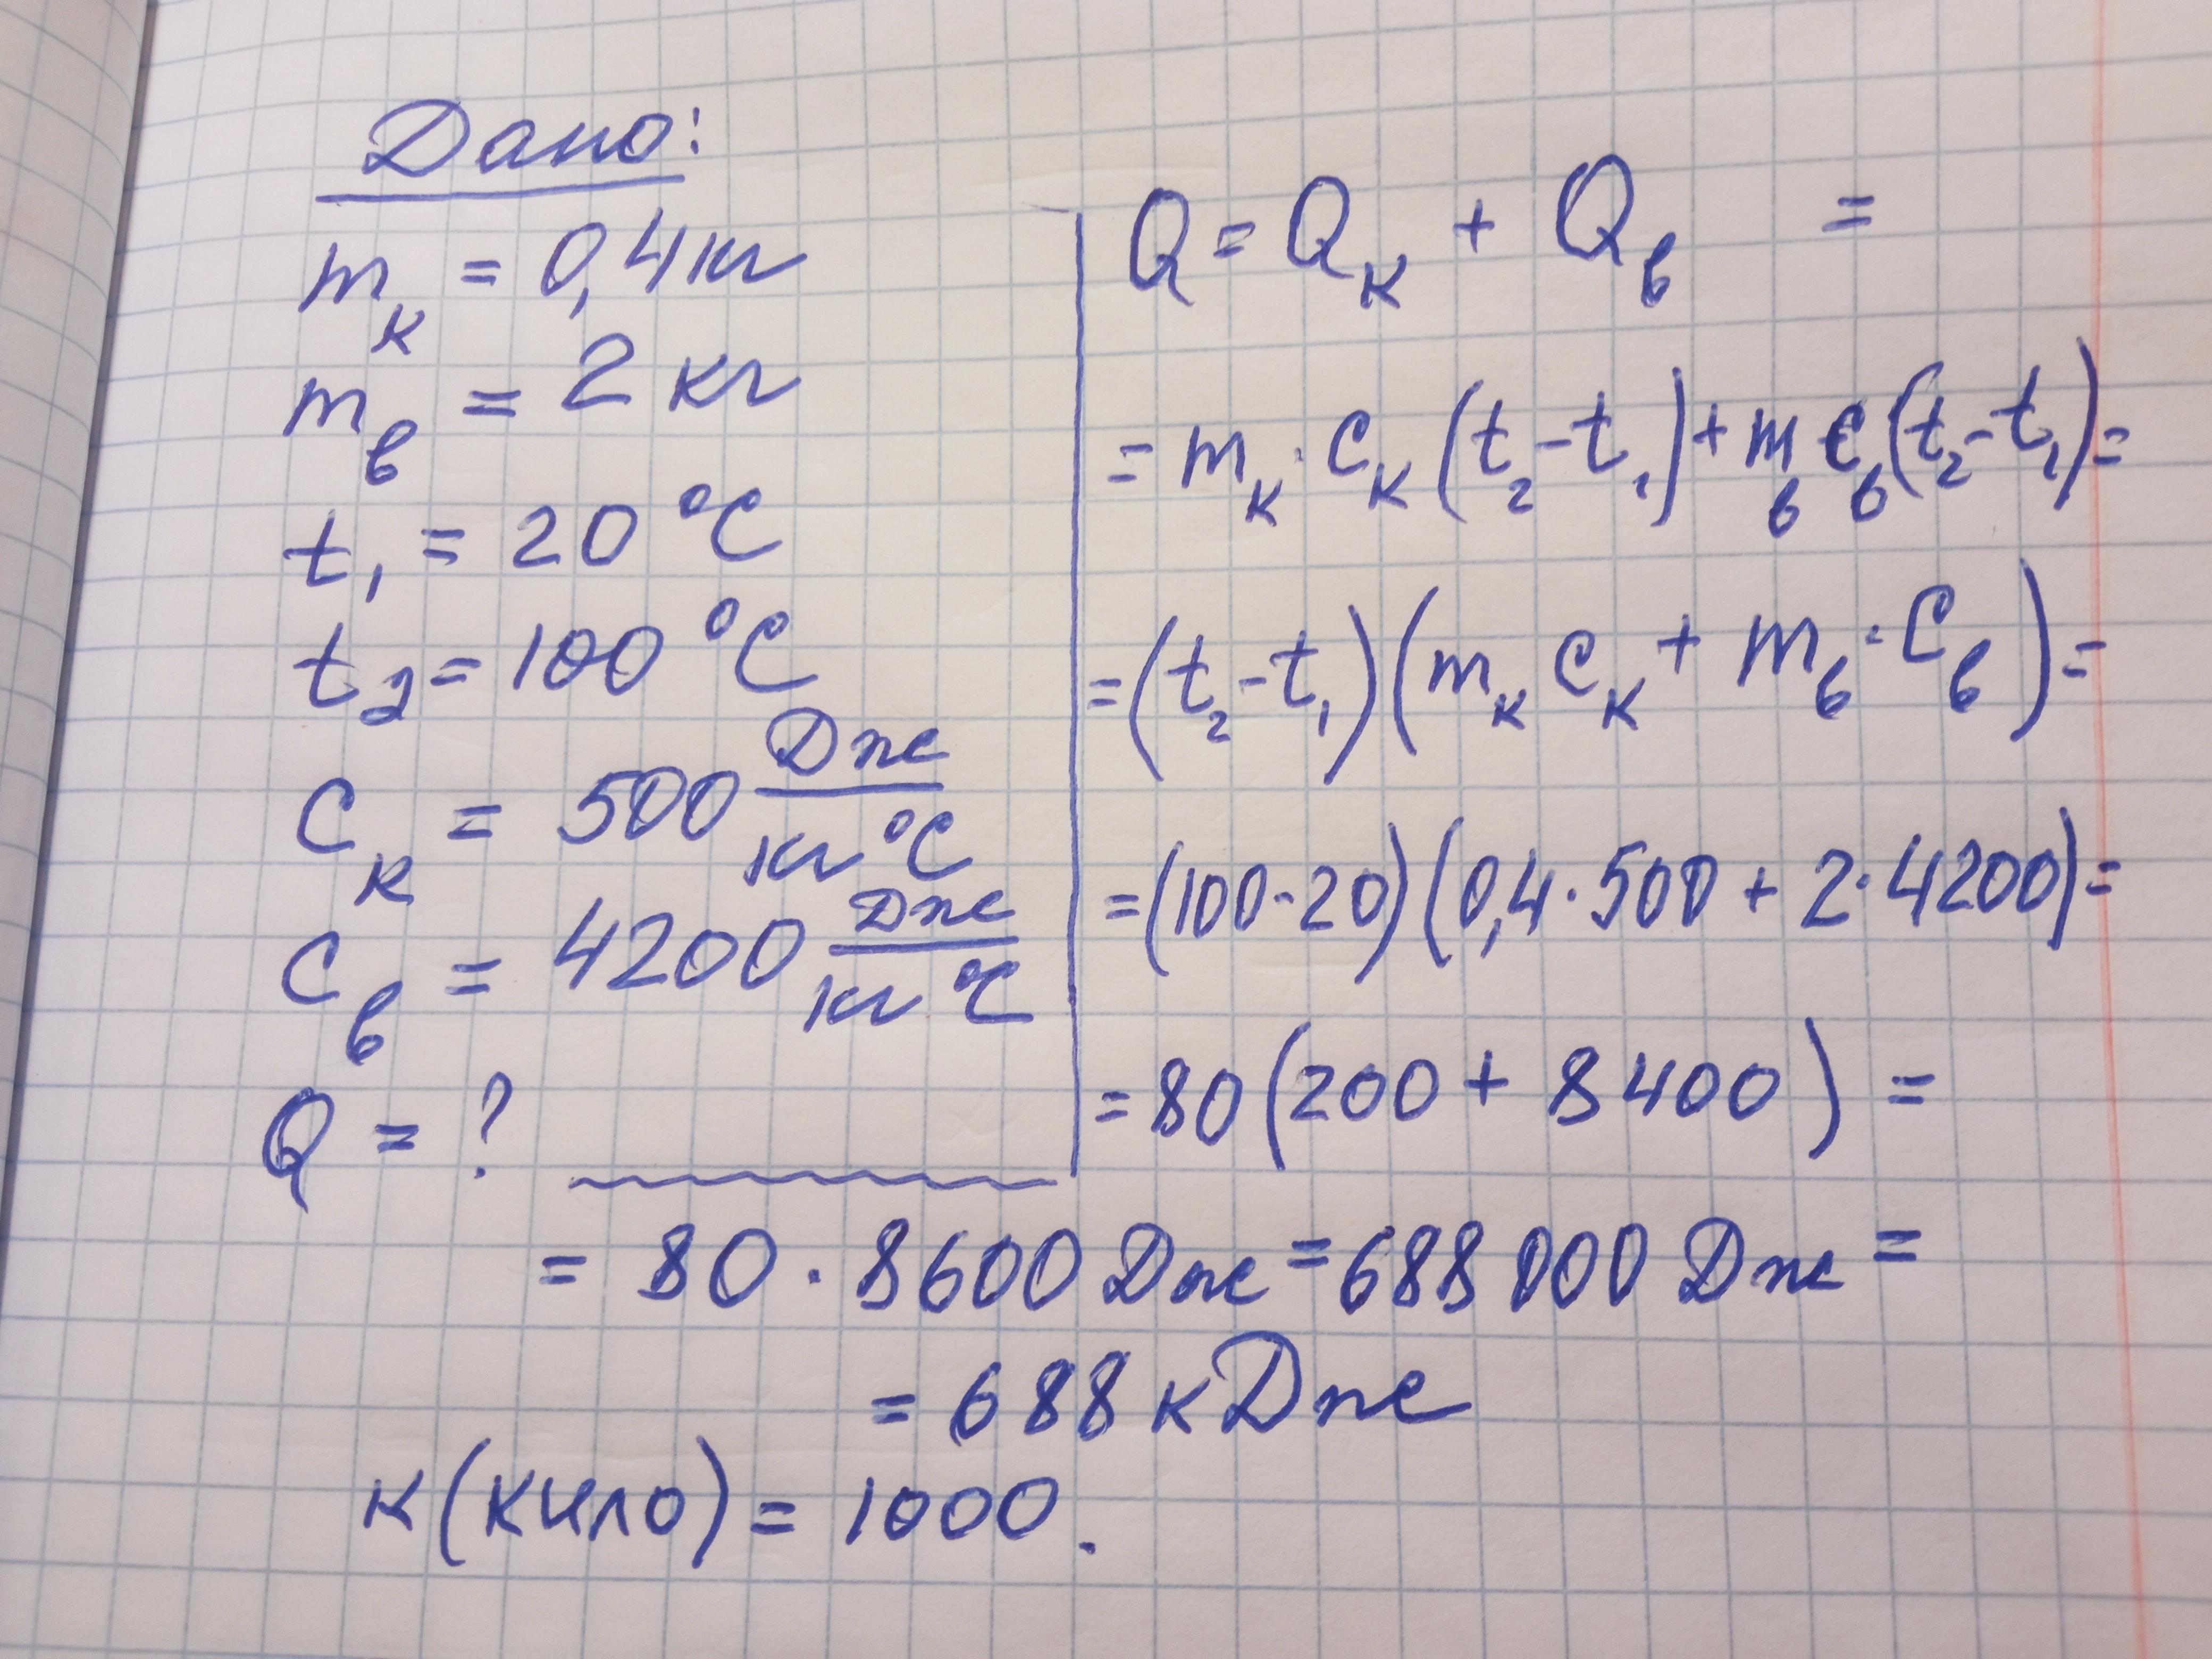 Дано:
m_к = 0,4 кг
m_в = 2 кг
t₁ = 20 °C
t₂ = 100 °C
C_к = 500 Дж/кг °C
C_в = 4200 Дж/кг °C
Q = ?
Q = Q_к + Q_в =
= m_к · C_к (t₂ - t₁) + m_в C_в (t₂ - t₁) =
= (t₂ - t₁)(m_к C_к + m_в · C_в) =
= (100 - 20)(0,4 · 500 + 2 · 4200) =
= 80 (200 + 8400) =
= 80 · 8600 Дж = 688 000 Дж =
= 688 кДж
к (кило) = 1000.